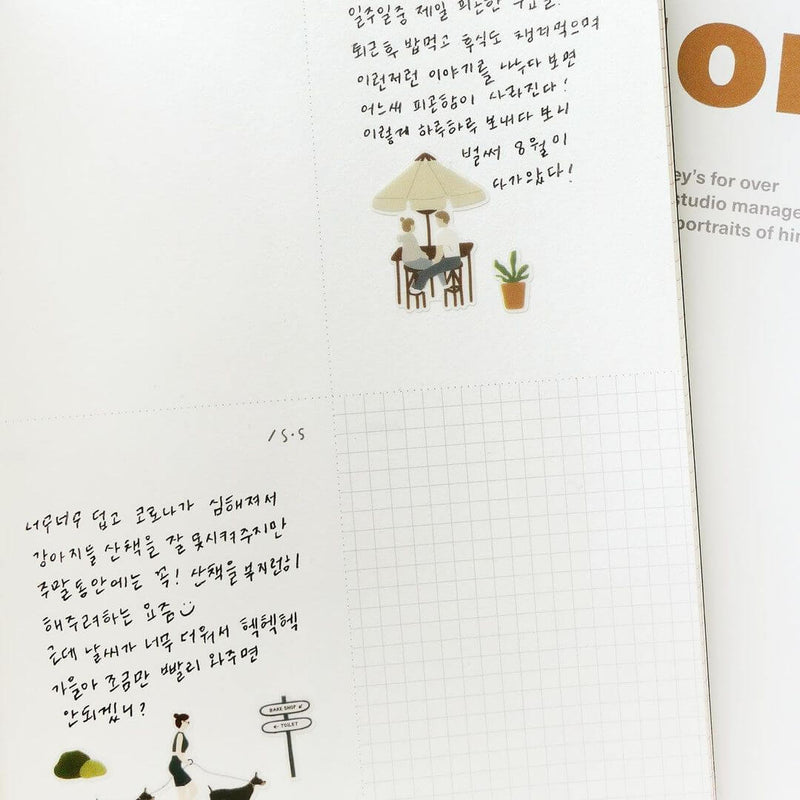 일주일중 제일 피곤한
퇴근후 밥먹고 후식도 챙겨먹으며
이런저런 이야기를 나누다 보면
어느새 피곤함이 사라진다!
이렇게 하루하루 보내다 보니
벌써 8월이
다가왔다!
15.5
너무너무 덥고 코로나가 심해져서
강아지들 산책을 잘 못시켜주지만
주말동안에는 꼭! 산책을 부지런히
해주려하는 요즘
근데 날씨가 너무 더워서 헥헥헥
가을아 조금만 빨리 와주면
안되겠니?
BAKE SHOP
TOILET
or
ey's for over
studio manage
portraits of hi